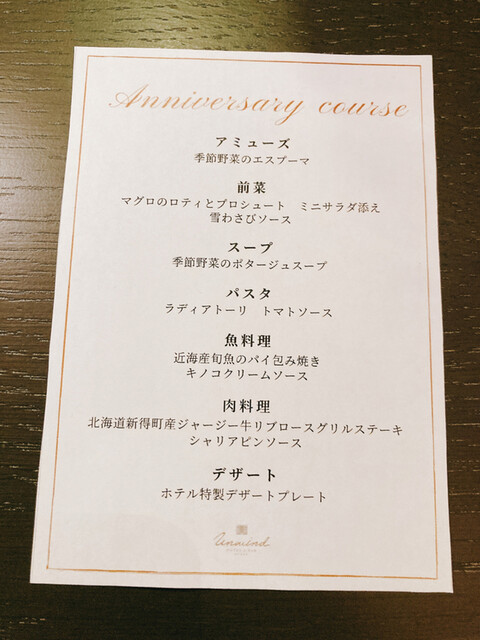 Anniversary course
アミューズ
季節野菜のエスプーマ
前菜
マグロのロティとプロシュート　ミニサラダ添え
雪わさびソース
スープ
季節野菜のポタージュスープ
パスタ
ラディアトーリ　トマトソース
魚料理
近海産旬魚のパイ包み焼き
キノコクリームソース
肉料理
北海道新得町産ジャージー牛リブロースグリルステーキ
シャリアピンソース
デザート
ホテル特製デザートプレート
Unwind